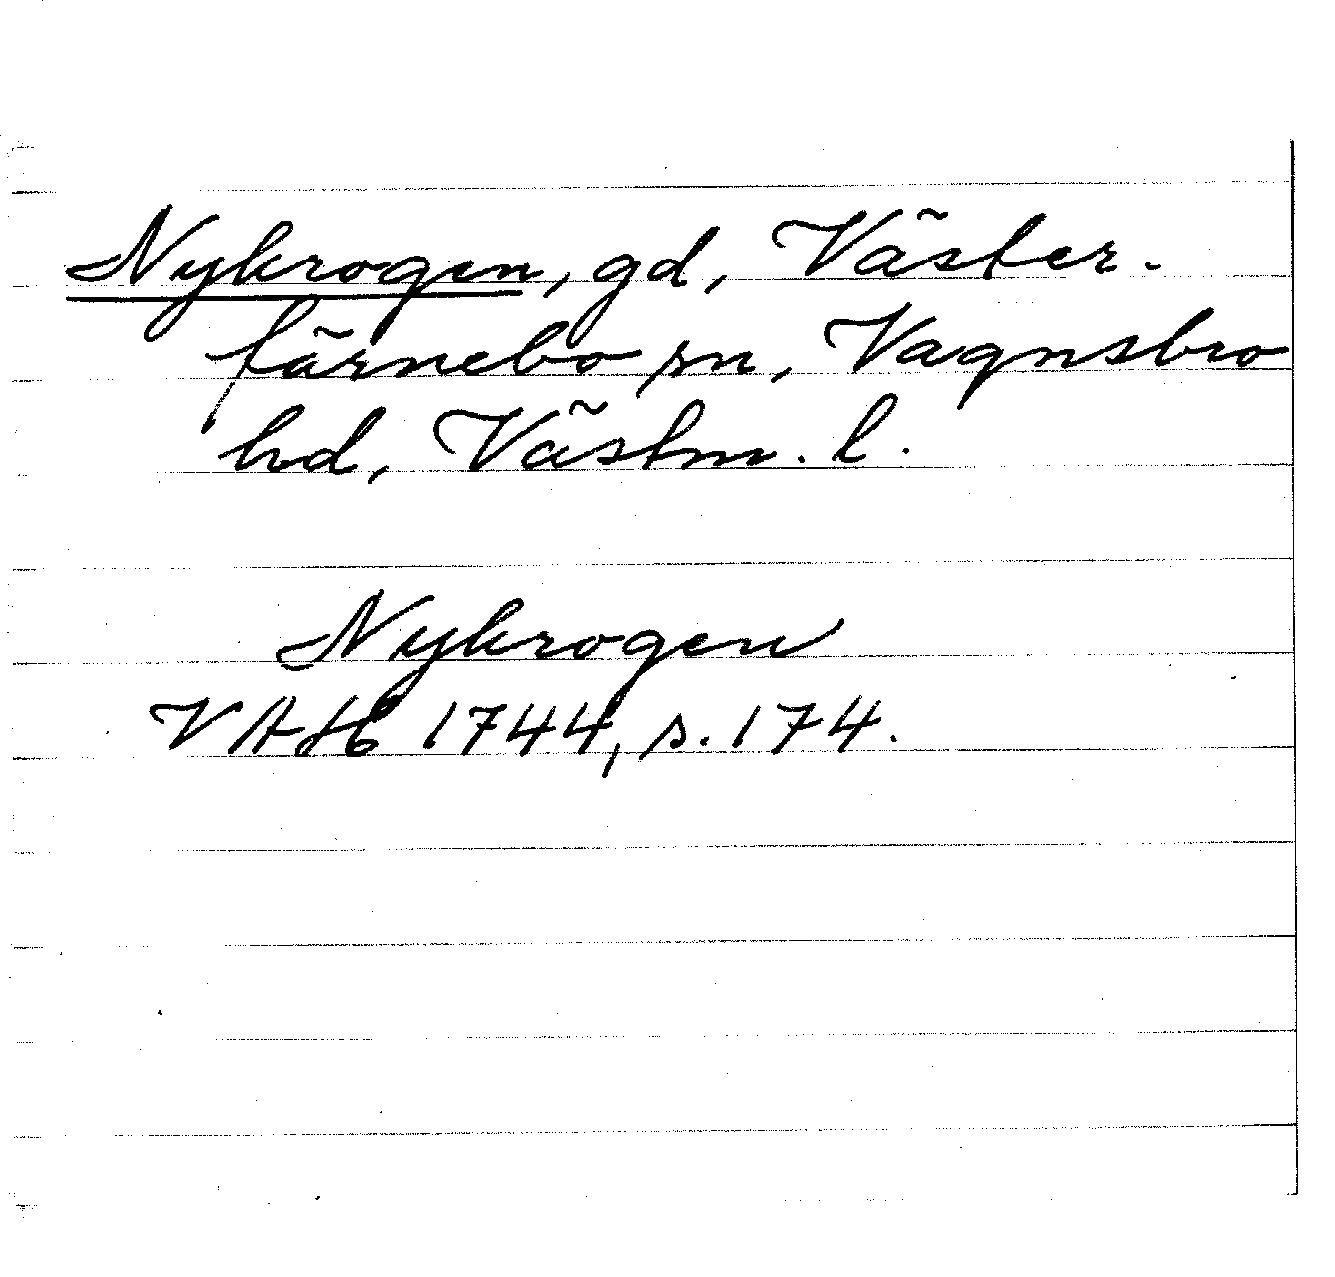 Nykrogen, gd, Väster-
färnebo sn, Vagnsbro
hd, Västm. l.
Nykrogen
VAH 1744, s. 174.